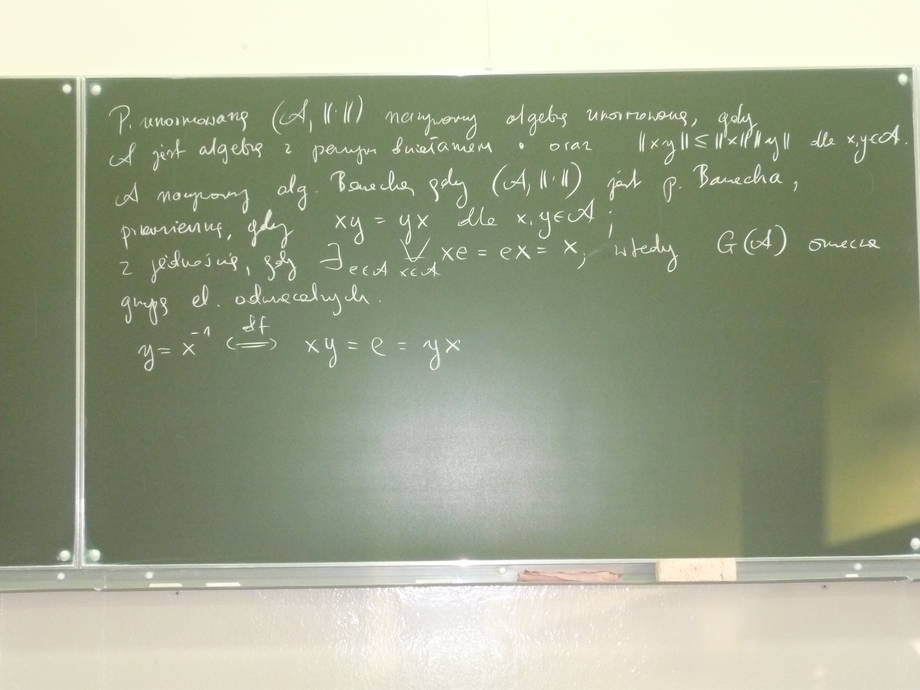 P. unormowaną (A, ||·||) nazywamy algebrą unormowaną, gdy
A jest algebrą z pewnym działaniem · oraz ||x·y|| ≤ ||x|| ||y|| dla x,y∈A.
A nazywamy alg. Banacha, gdy (A, ||·||) jest p. Banacha,
przemienną, gdy xy = yx dla x,y∈A;
z jednością, gdy ∃ e∈A ∀ x∈A xe = ex = x; wtedy G(A) oznacza
grupę el. odwracalnych.
y = x⁻¹ ⟺ df xy = e = yx